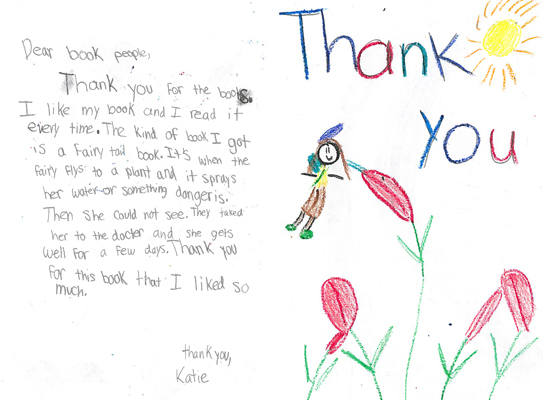 Dear book people,
Thank you for the books.
I like my book and I read it
every time. The kind of book I got
is a Fairy tail book. It's when the
fairy flys to a plant and it sprays
her water or something dangeris.
Then she could not see. They taked
her to the docter and she gets
well for a few days. Thank you
for this book that I liked so
much.
thank you,
Katie
Thank
you